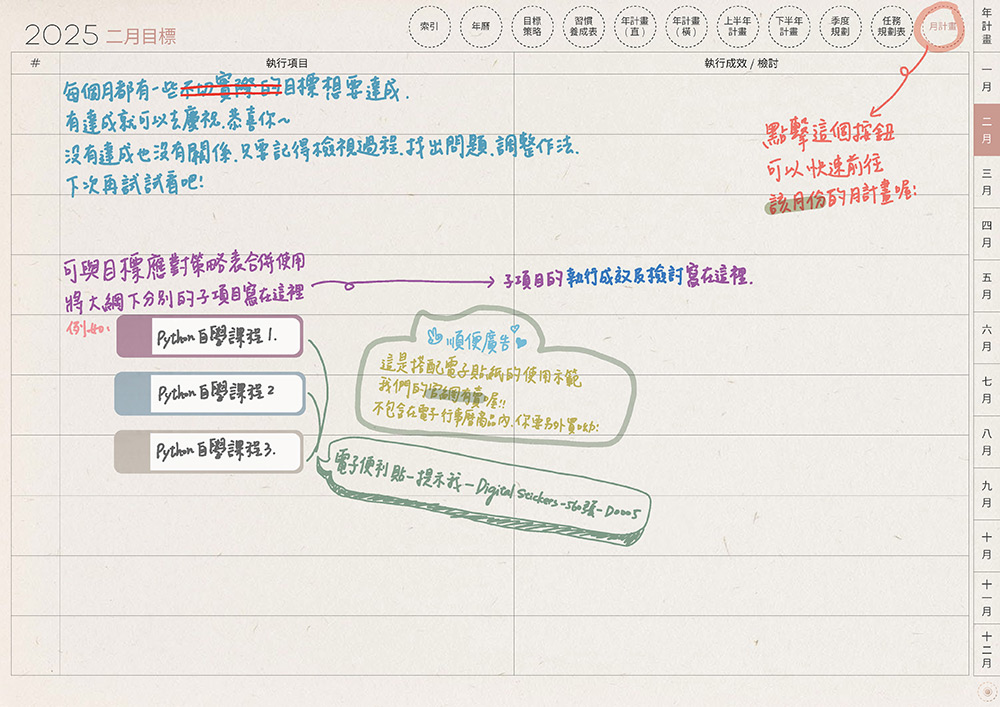 2025 二月目標
索引
年曆
目標
策略
習慣
養成表
年計畫
(直)
年計畫
(橫)
上半年
計畫
下半年
計畫
季度
規劃
任務
規劃表
月計畫
#
執行項目
執行成效 / 檢討
每個月都有一些不切實際的目標想要達成.
有達成就可以去慶祝.恭喜你~
沒有達成也沒有關係.只要記得檢視過程.找出問題.調整作法.
下次再試試看吧!
點擊這個按鈕
可以快速前往
該月份的月計畫喔!
可與目標應對策略表合併使用
將大綱下分別的子項目寫在這裡
子項目的執行成效及檢討寫在這裡.
例如:
Python自學課程1.
Python自學課程2
Python自學課程3.
順便廣告
這是搭配電子貼紙的使用示範
我們的官網有賣喔!!
不包含在電子行事曆商品內.你要另外買
電子便利貼-提示我-Digital Stickers-560張-D0005
年計畫
一月
二月
三月
四月
五月
六月
七月
八月
九月
十月
十一月
十二月